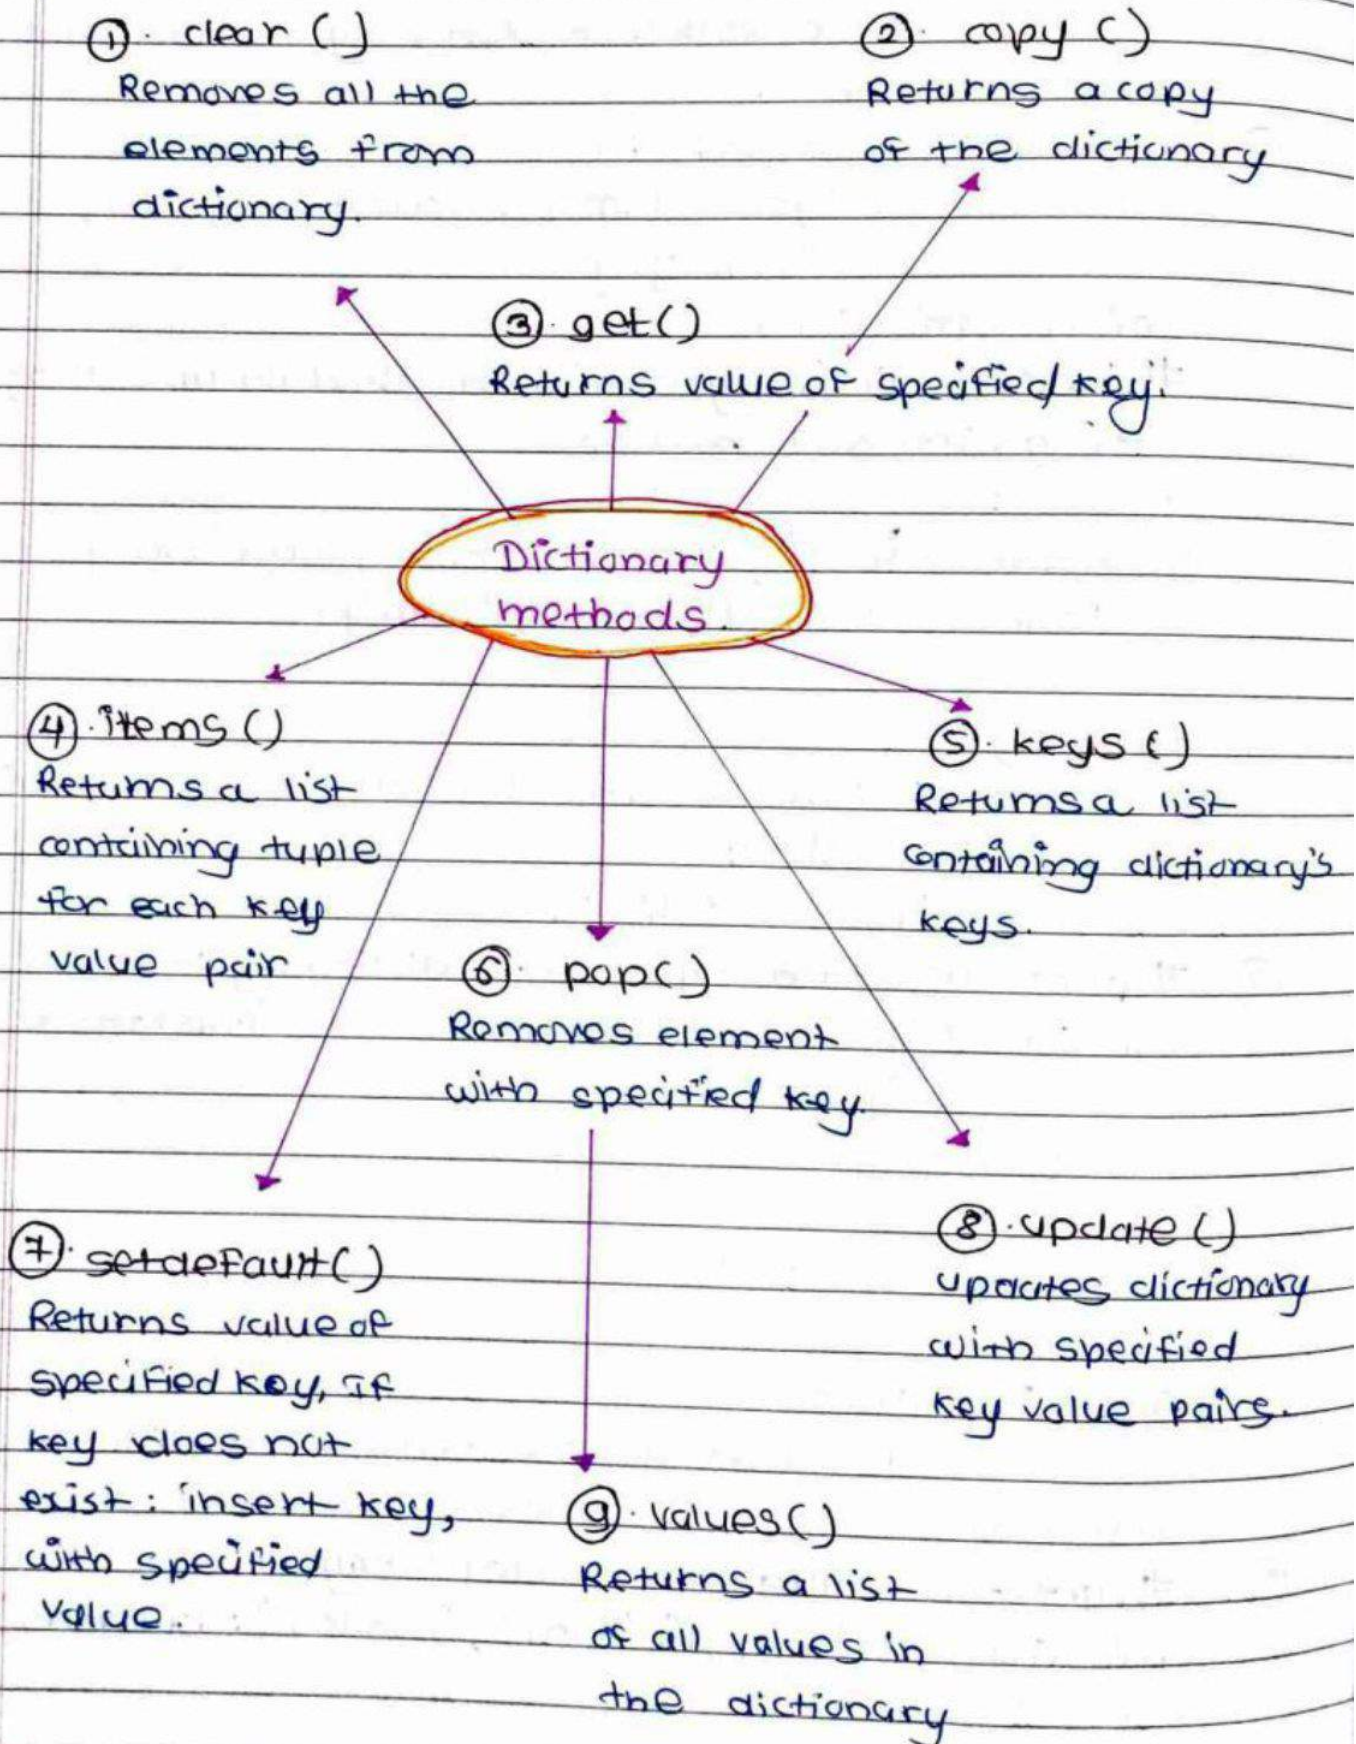 ①. clear ()
Removes all the
elements from
dictionary.
②. copy ()
Returns a copy
of the dictionary
③. get()
Returns value of specified key.
Dictionary
methods.
④. items ()
Returns a list
containing tuple
for each key
value pair
⑤. keys ()
Returns a list
containing dictionary's
keys.
⑥. pop()
Removes element
with specified key.
⑦. setdefault()
Returns value of
specified key, if
key does not
exist: insert key,
with specified
value.
⑧. update ()
updates dictionary
with specified
key value pairs.
⑨. values()
Returns a list
of all values in
the dictionary